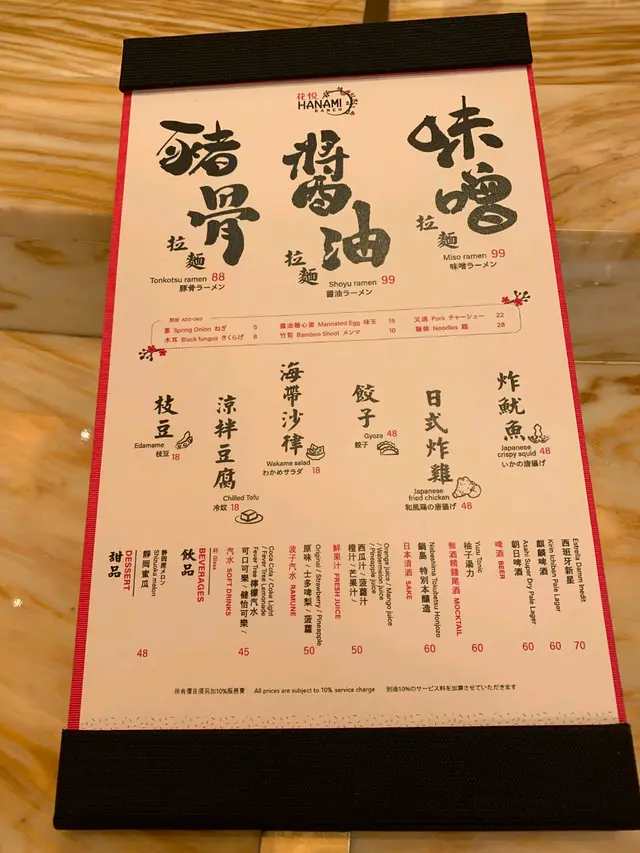 花悦
HANAMI
RAMEN
豬骨
拉麵
Tonkotsu ramen 88
豚骨ラーメン
醬油
拉麵
Shoyu ramen 99
醤油ラーメン
味噌
拉麵
Miso ramen 99
味噌ラーメン
附加 ADD-ONS
蔥 Spring Onion ねぎ 5
木耳 Black fungus きくらげ 8
醬油糖心蛋 Marinated Egg 味玉 15
竹筍 Bamboo Shoot メンマ 10
叉燒 Pork チャーシュー 22
麵條 Noodles 麺 28
枝豆
Edamame
枝豆 18
涼拌豆腐
Chilled Tofu
冷奴 18
海帶沙律
Wakame salad
わかめサラダ 18
餃子
Gyoza 48
餃子
日式炸雞
Japanese
fried chicken
和風鶏の唐揚げ 48
炸魷魚
Japanese
crispy squid 48
いかの唐揚げ
甜品
DESSERT
靜岡蜜瓜
Shizuoka melon
静岡産メロン
48
飲品
BEVERAGES
杯 Glass
汽水 SOFT DRINKS
可口可樂 / 健怡可樂 /
Fever Tree 檸檬汽水
Coca Cola / Coke Light
/ Fever Tree Lemonade
45
波子汽水 RAMUNE
原味 / 士多啤梨 / 菠蘿
Original / Strawberry / Pineapple
50
鮮果汁 FRESH JUICE
橙汁 / 芒果汁 /
西瓜汁 / 菠蘿汁
Orange juice / Mango juice
/ Watermelon juice
/ Pineapple juice
50
日本清酒 SAKE
鍋島 特別本釀造
Nabeshima Tokubetsu Honjozo
60
無酒精雞尾酒 MOCKTAIL
柚子湯力
Yuzu Tonic
60
啤酒 BEER
朝日啤酒
Asahi Super Dry Pale Lager
60
麒麟啤酒
Kirin Ichiban Pale Lager
60
西班牙新星
Estrella Damm Inedit
70
所有價目須另加10%服務費 All prices are subject to 10% service charge 別途10%のサービス料を加算させていただきます